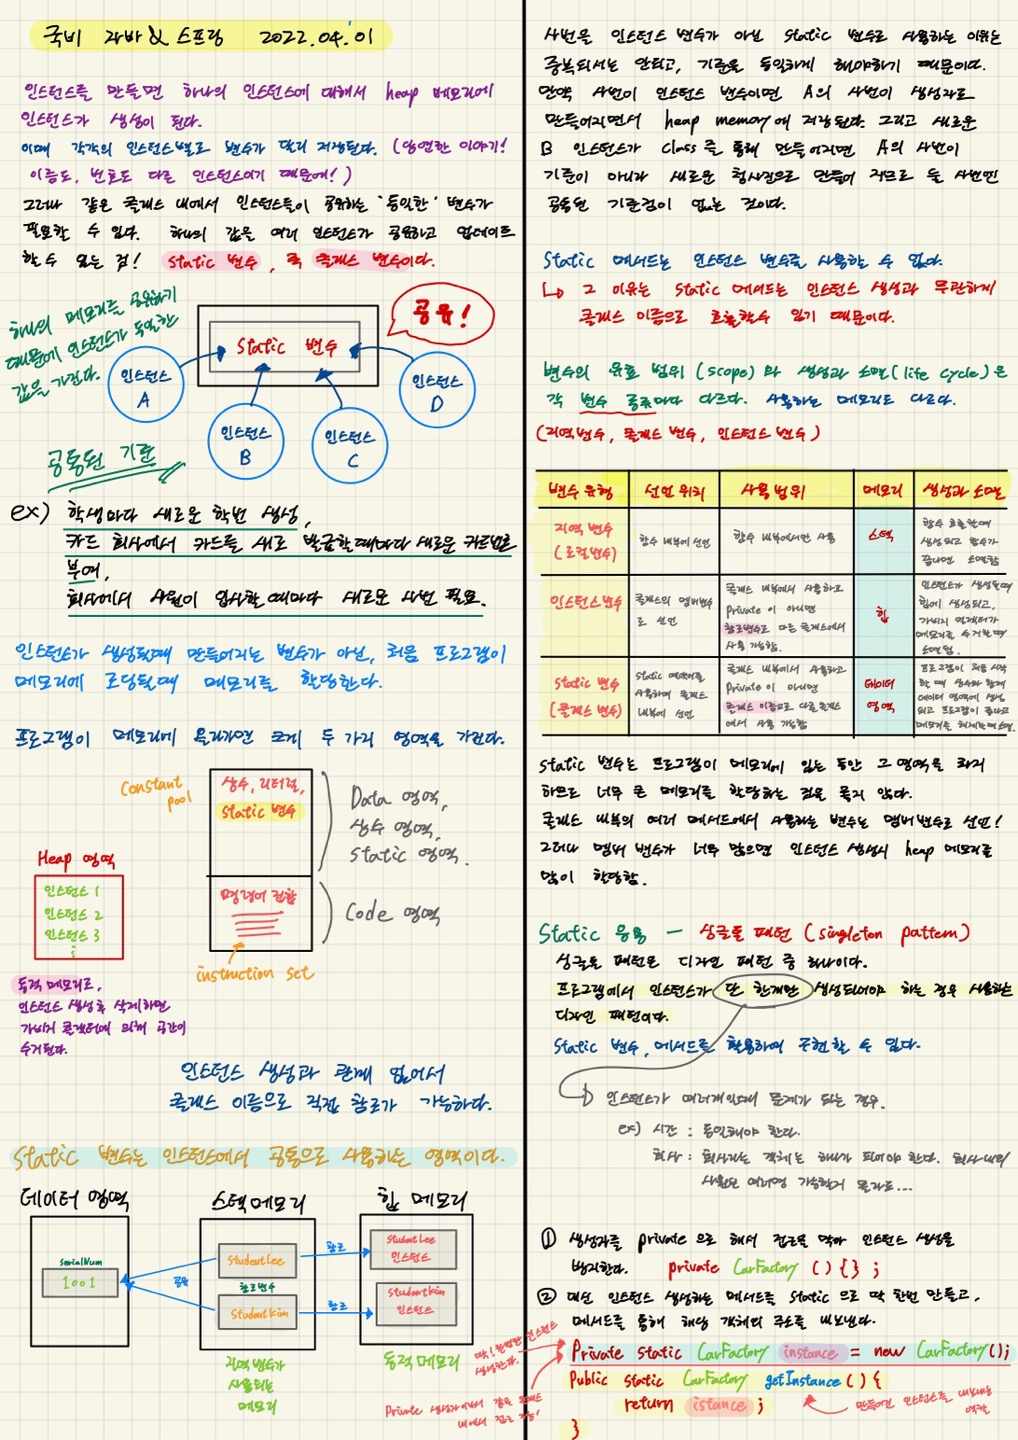 국비 자바 & 스프링 2022.04.01
인스턴스를 만들면 하나의 인스턴스에 대해서 heap 메모리에
인스턴스가 생성이 된다.
이때 각각의 인스턴스별로 변수가 달리 저장된다. (당연한 이야기!
이름도, 번호도 다른 인스턴스이기 때문에!)
그러나 같은 클래스 내에서 인스턴스들이 공유하는 '동일한' 변수가
필요할 수 있다. 하나의 값을 여러 인스턴스가 공유하고 업데이트
할 수 있는 점! static 변수, 즉 클래스 변수이다.
하나의 메모리를 공유하기
때문에 인스턴스가 동일한
값을 가진다.
공유!
static 변수
인스턴스
A
인스턴스
B
인스턴스
C
인스턴스
D
공통된 기준
ex) 학생마다 새로운 학번 생성,
카드 회사에서 카드를 새로 발급할때마다 새로운 카드번호
부여,
회사에서 사원이 입사할때마다 새로운 사번 필요.
인스턴스가 생성될때 만들어지는 변수가 아닌, 처음 프로그램이
메모리에 로딩될때 메모리를 할당한다.
프로그램이 메모리에 올라가면 크게 두 가지 영역을 가진다.
Constant
pool
상수, 리터럴,
static 변수
Data 영역,
상수 영역,
static 영역.
명령어 집합
Code 영역
instruction set
Heap 영역
인스턴스 1
인스턴스 2
인스턴스 3
동적 메모리로,
인스턴스 생성후 삭제하면
가비지 콜렉터에 의해 공간이
수거된다.
인스턴스 생성과 관계 없이서
클래스 이름으로 직접 참조가 가능하다.
static 변수는 인스턴스에서 공통으로 사용하는 영역이다.
데이터 영역
스택 메모리
힙 메모리
serialNum
1001
공유
StudentLee
참조변수
StudentKim
참조
참조
StudentLee
인스턴스
StudentKim
인스턴스
지역변수가
사용되는
메모리
동적 메모리
사번을 인스턴스 변수가 아닌 static 변수로 사용하는 이유는
중복되서는 안되고, 기준을 동일하게 해야하기 때문이다.
만약 사번이 인스턴스 변수이면 A의 사번이 생성자로
만들어지면서 heap memory에 저장된다. 그리고 새로운
B 인스턴스가 class를 통해 만들어지면 A의 사번이
기준이 아니라 새로운 형식으로 만들어 지므로 둘 사번엔
공통된 기준점이 없는 것이다.
static 메서드는 인스턴스 변수를 사용할 수 없다.
↳ 그 이유는 static 메서드는 인스턴스 생성과 무관하게
클래스 이름으로 호출할수 있기 때문이다.
변수의 유효 범위(scope)와 생성과 소멸(life cycle)은
각 변수 종류마다 다르다. 사용하는 메모리도 다르다.
(지역변수, 클래스 변수, 인스턴스 변수)
변수 유형 선언 위치 사용 범위 메모리 생성과 소멸
지역 변수
(로컬변수)
함수 내부에 선언
함수 내부에서만 사용
스택
함수 호출할때
생성되고 함수가
끝나면 소멸함
인스턴스변수
클래스의 멤버변수
로 선언
클래스 내부에서 사용하고
Private이 아니면
참조변수로 다른 클래스에서
사용 가능함.
힙
인스턴스가 생성될때
힙에 생성되고,
가비지 컬렉터가
메모리를 수거할때
소멸됨.
static 변수
(클래스 변수)
static 예약어를
사용하여 클래스
내부에 선언
클래스 내부에서 사용하고
Private이 아니면
클래스 이름으로 다른클래스
에서 사용 가능함
데이터
영역
프로그램이 처음 시작
할 때 상수와 함께
데이터 영역에 생성
되고 프로그램이 끝나고
메모리를 해제할때 소멸.
static 변수는 프로그램이 메모리에 있는 동안 그 영역을 차지
하므로 너무 큰 메모리를 할당하는 것은 좋지 않다.
클래스 내부의 여러 메서드에서 사용하는 변수는 멤버변수로 선언!
그러나 멤버 변수가 너무 많으면 인스턴스 생성시 heap 메모리를
많이 할당함.
Static 응용 - 싱글톤 패턴 (singleton pattern)
싱글톤 패턴은 디자인 패턴 중 하나이다.
프로그램에서 인스턴스가 단 한개만 생성되어야 하는 경우 사용하는
디자인 패턴이다.
static 변수, 메서드를 활용하여 구현할 수 있다.
인스턴스가 여러개일때 문제가 되는 경우.
ex) 시간 : 동일해야 한다.
회사 : 회사라는 객체는 하나가 되어야 한다. 회사내의
사원은 여러명 가능할거 몰라도...
① 생성자를 private으로 해서 접근을 막아 인스턴스 생성을
방지한다. private CarFactory () {} ;
② 대신 인스턴스 생성하는 메서드를 static으로 딱 한번 만들고,
메서드를 통해 해당 객체의 주소를 내보낸다.
딱! 한번만 인스턴스
생성한다.
Private static CarFactory instance = new CarFactory();
Public static CarFactory getInstance () {
return istance ;
}
Private
만들어진 인스턴스를 내보내는
역할